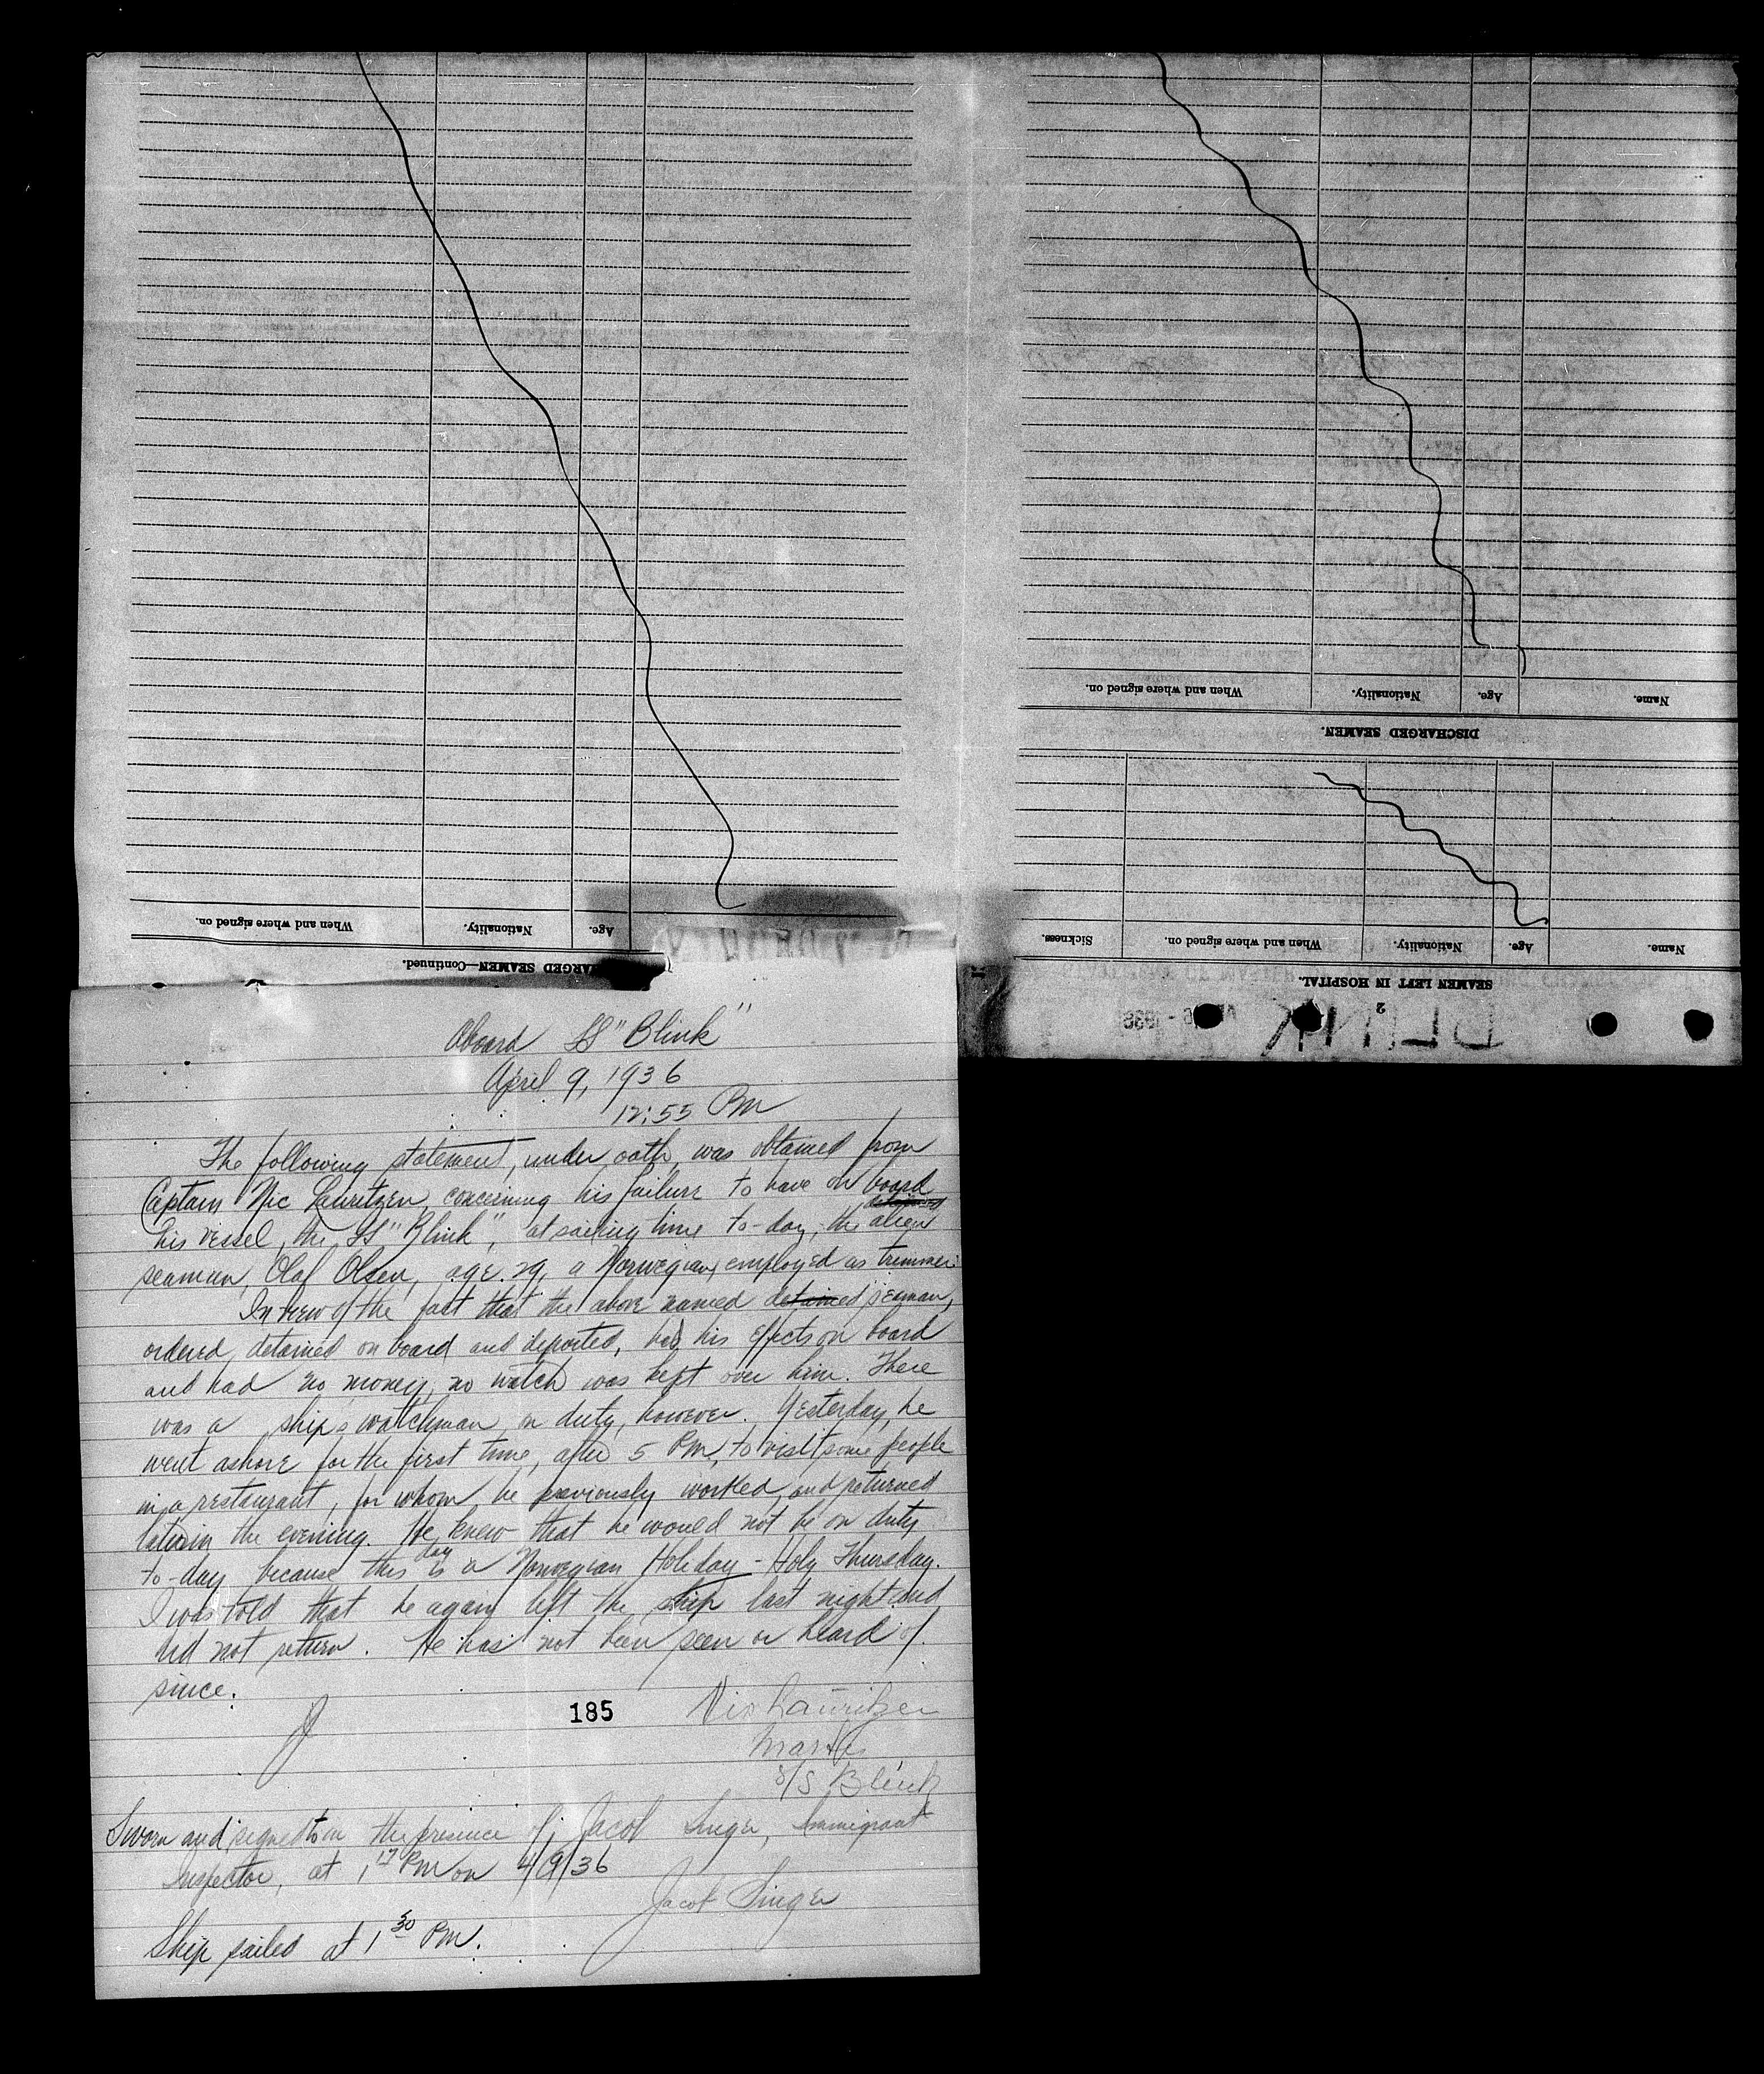 When and where signed on.
Nationality.
Age.
ARGED SEAMEN—Continued.
When and where signed on.
Nationality.
Age.
Name.
DISCHARGED SEAMEN.
Sickness.
When and where signed on.
Nationality.
Age.
Name.
SEAMEN LEFT IN HOSPITAL.
2
BLINK
Aboard SS "Blink"
April 9, 1936
12:55 PM
The following statement, under oath, was obtained from
Captain Nic Lauritzen, concerning his failure to have on board
detained
his vessel, the SS "Blink", at sailing time to-day, the alien
seaman, Olaf Olsen, age 29, a Norwegian, employed as trimmer.
In view of the fact that the above named detained seaman,
ordered detained on board and deported, had his effects on board
and had no money, no watch was kept over him. There
was a ship's watchman on duty, however. Yesterday, he
went ashore for the first time, after 5 PM, to visit some people
in a restaurant, for whom he previously worked, and returned
later in the evening. He knew that he would not be on duty
to-day because this day is a Norwegian Holiday - Holy Thursday.
I was told that he again left the ship last night and
did not return. He has not been seen or heard of
since.
185
Nic Lauritzen
Master
S/S Blink
Sworn and signed to in the presence of, Jacob Singer, Immigrant
Inspector, at 1 17 PM on 4/9/36
Jacob Singer
Ship sailed at 1 30 PM.